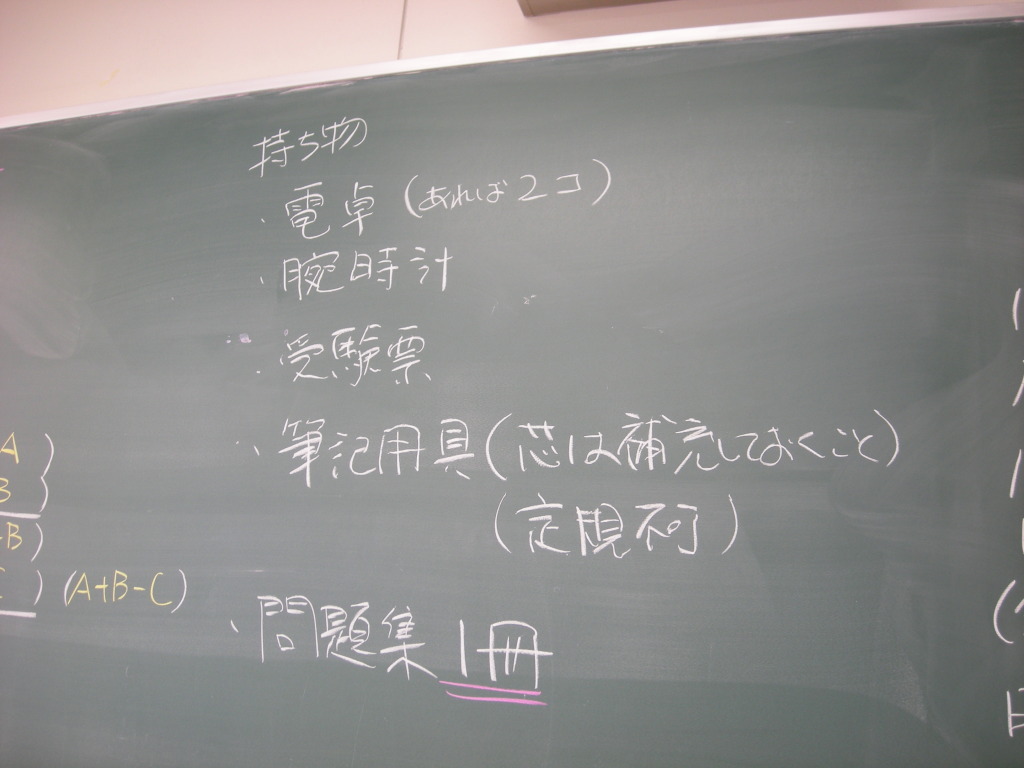 持ち物
・電卓(あれば2コ)
・腕時計
・受験票
・筆記用具(芯は補充しておくこと)
(定規不可)
・問題集1冊
A)
B)
B)
) (A+B-C)